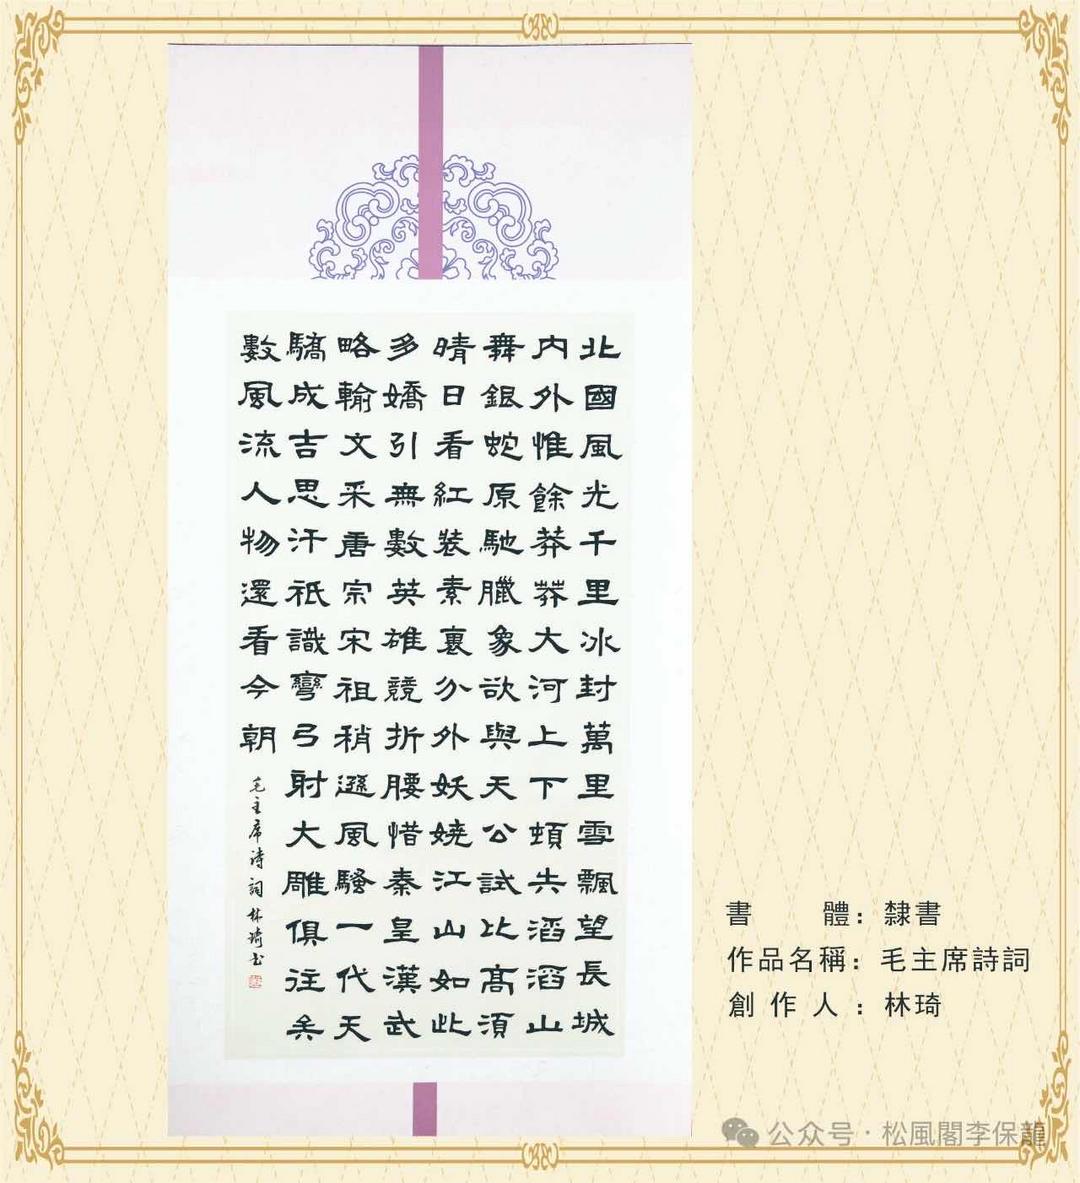 北國風光千里冰封萬里雪飄望長城
内外惟餘莽莽大河上下頓失滔滔山
舞銀蛇原馳臘象欲與天公試比高須
晴日看紅裝素裹分外妖嬈江山如此
多嬌引無數英雄競折腰惜秦皇漢武
略輸文采唐宗宋祖稍遜風騷一代天
驕成吉思汗祇識彎弓射大雕俱往矣
數風流人物還看今朝
毛主席诗詞 林琦书
書 體：隸書
作品名稱：毛主席詩詞
創作人：林琦
公众号·松風閣李保龍